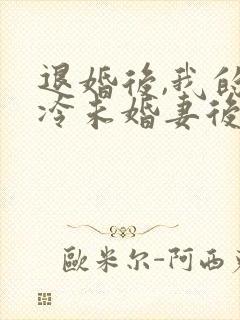 退婚後,我的
冷未婚妻後
歐米尔-阿西